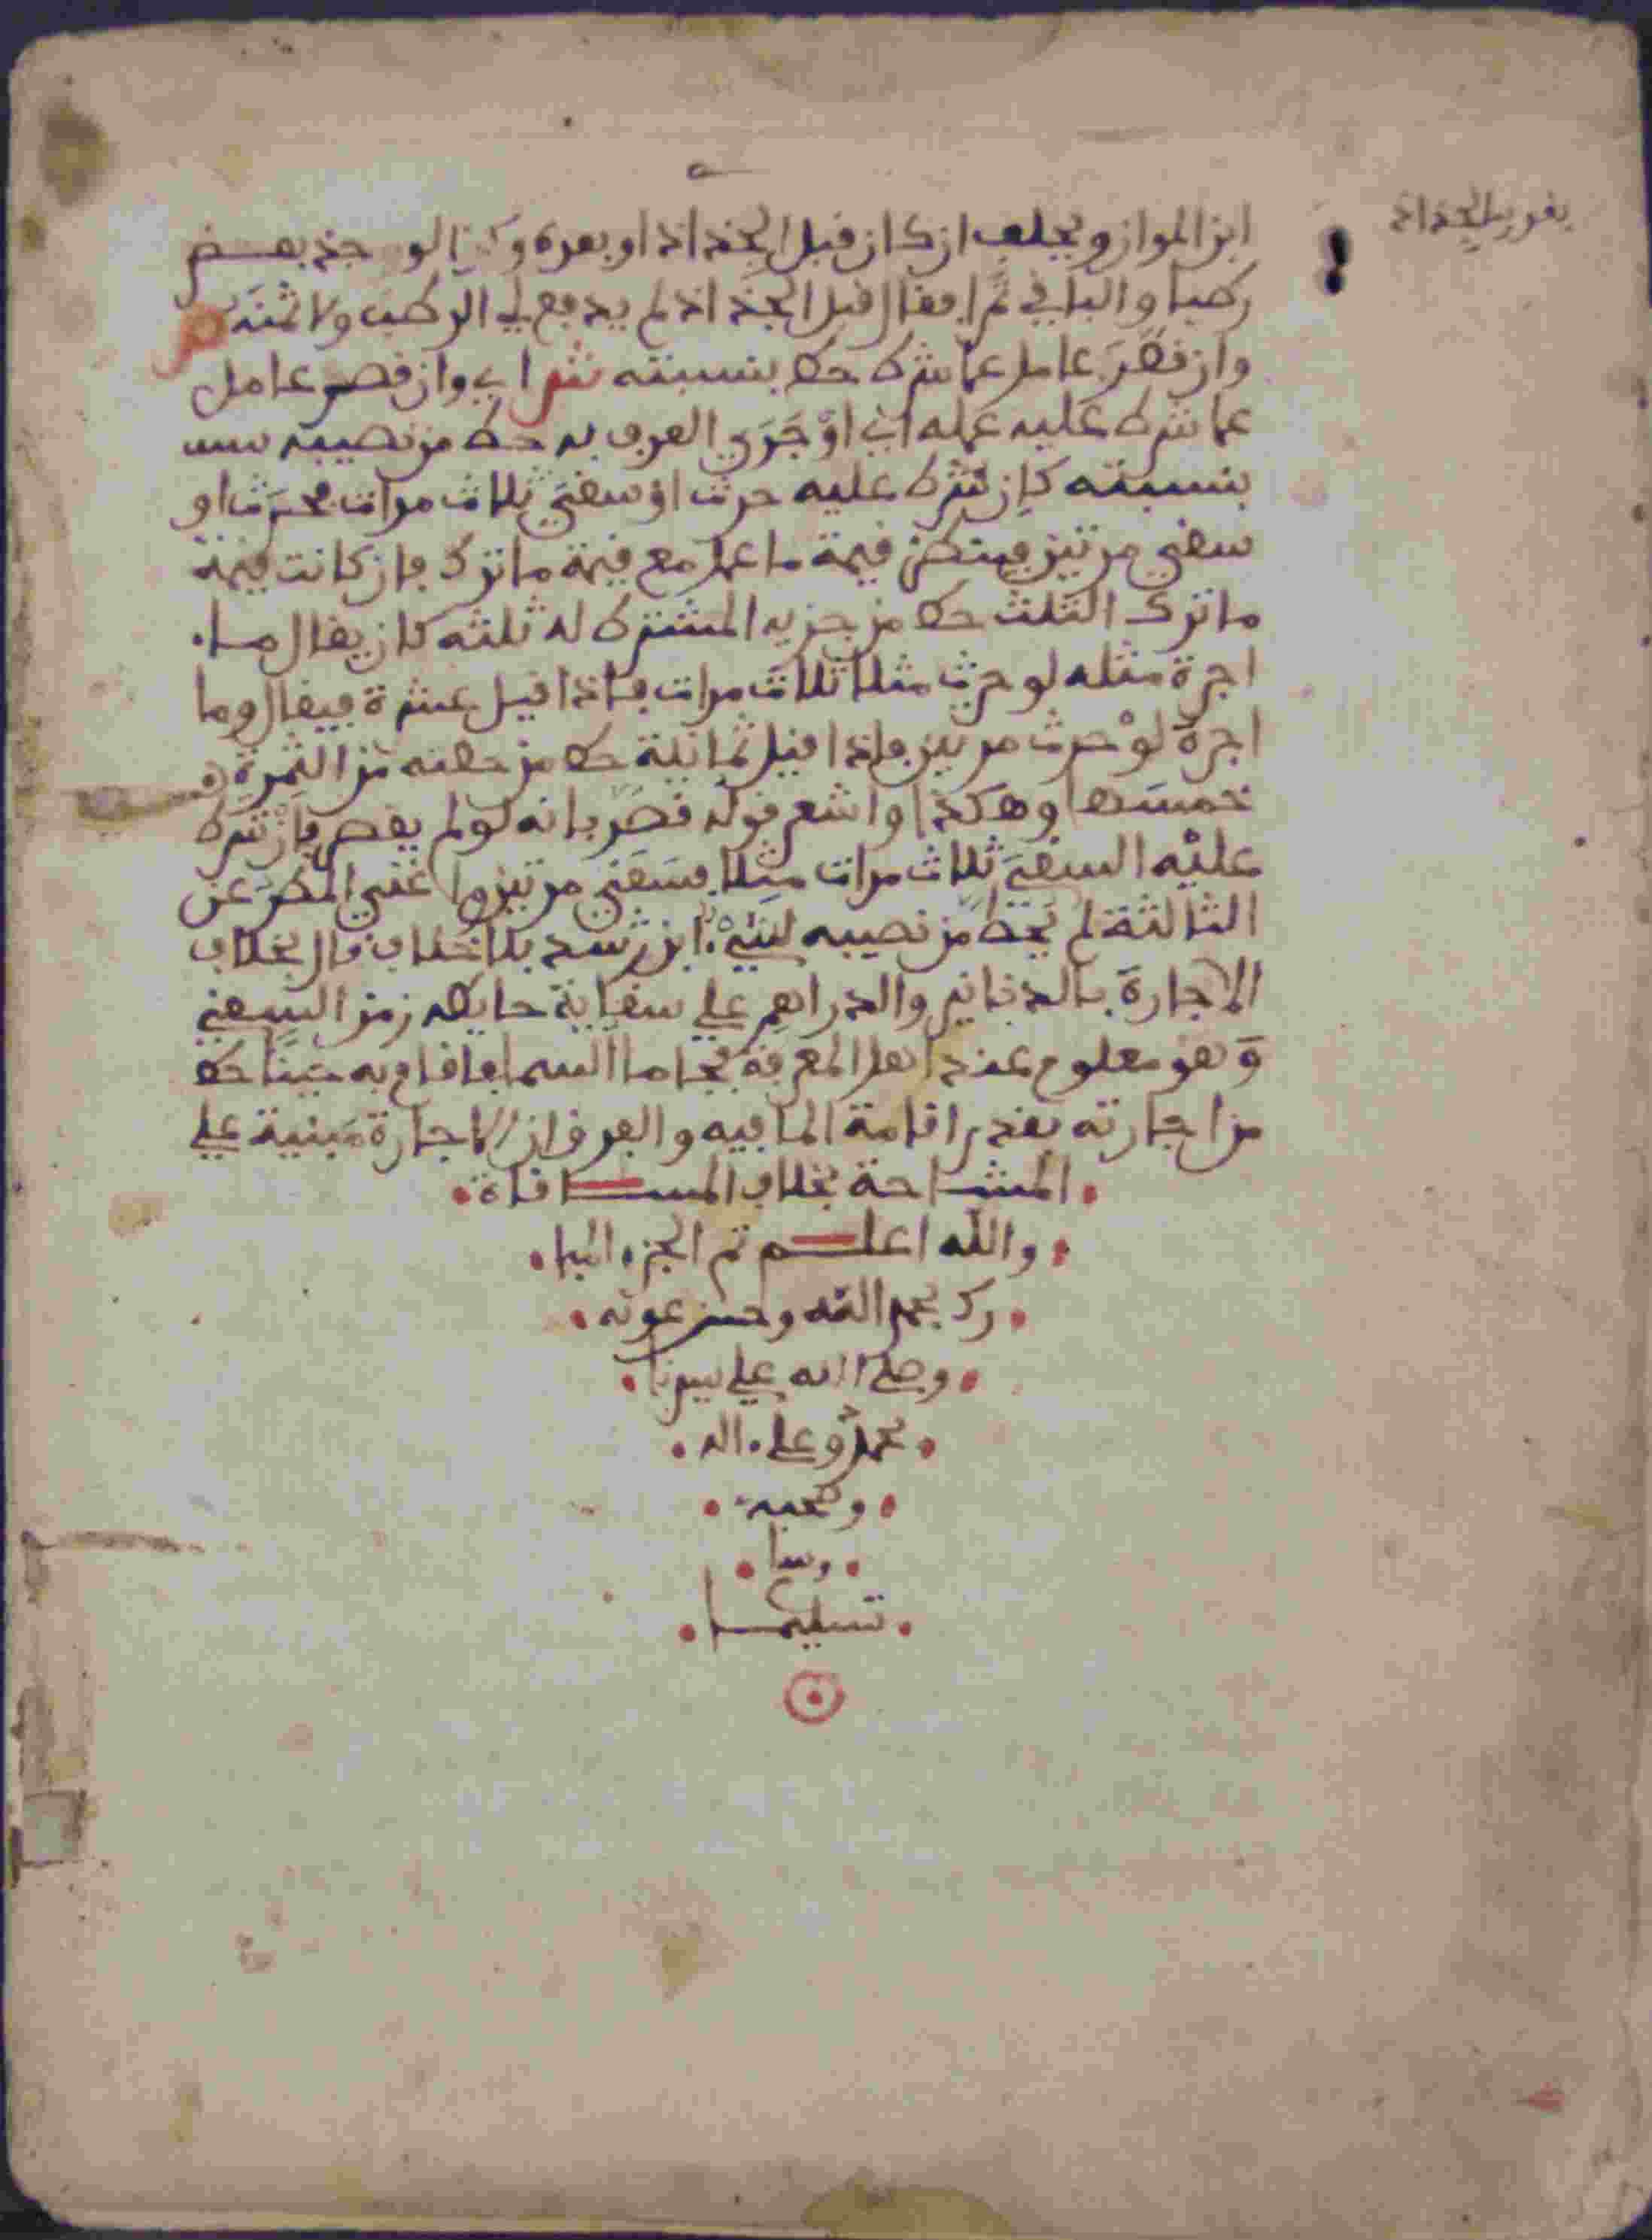 بقرب الجذاذ
ابن المواز ويحلف ان كان قبل الجذاذ او بعده وكذا لو جذ بعض
رطبا والباقي ثمرا فقال قبل الجذاذ لم يدفع لي الرطب ولا ثمنه
وان قصر عامل عما شرط حط بنسبته ش اي وان قصر عامل
عما شرط عليه عمله اي او جرى العرف به حط من نصيبه
بنسبته كان شرط عليه حرث او سقي ثلاث مرات فحرث او
سقي مرتين فينظر قيمة ما عمل مع قيمة ما ترك فان كانت قيمة
ما ترك الثلث حط من جزيه المشترط له ثلثه كان يقال ما
اجرة مثله لو حرث مثلا ثلاث مرات فاذا قيل عشرة فيقال وما
اجرة لو حرث مرتين فاذا قيل ثمانية حط من حصته من الثمرة
خمسها وهكذا واشعر قوله قصر بانه لو لم يقصر فان شرط
عليه السقي ثلاث مرات مثلا فسقي مرتين واغنى المطر عن
الثالثة لم يحط من نصيبه شيء ابن رشد بلا خلاف قال بخلاف
الاجارة بالدنانير والدراهم على سقاية حايطه زمن السقي
وهو معلوم عند اهل المعرفة فجا ما السما فاقام به حينا حط
من اجارته بقدر اقامة الما فيه والفرق ان الاجارة مبنية على
المشاحة بخلاف المساقاة
والله اعلم تم الجزء المبا
رك بحمد الله وحسن عونه
وصلى الله على سيدنا
محمد وعلى اله
وصحبه
وسلم
تسليما